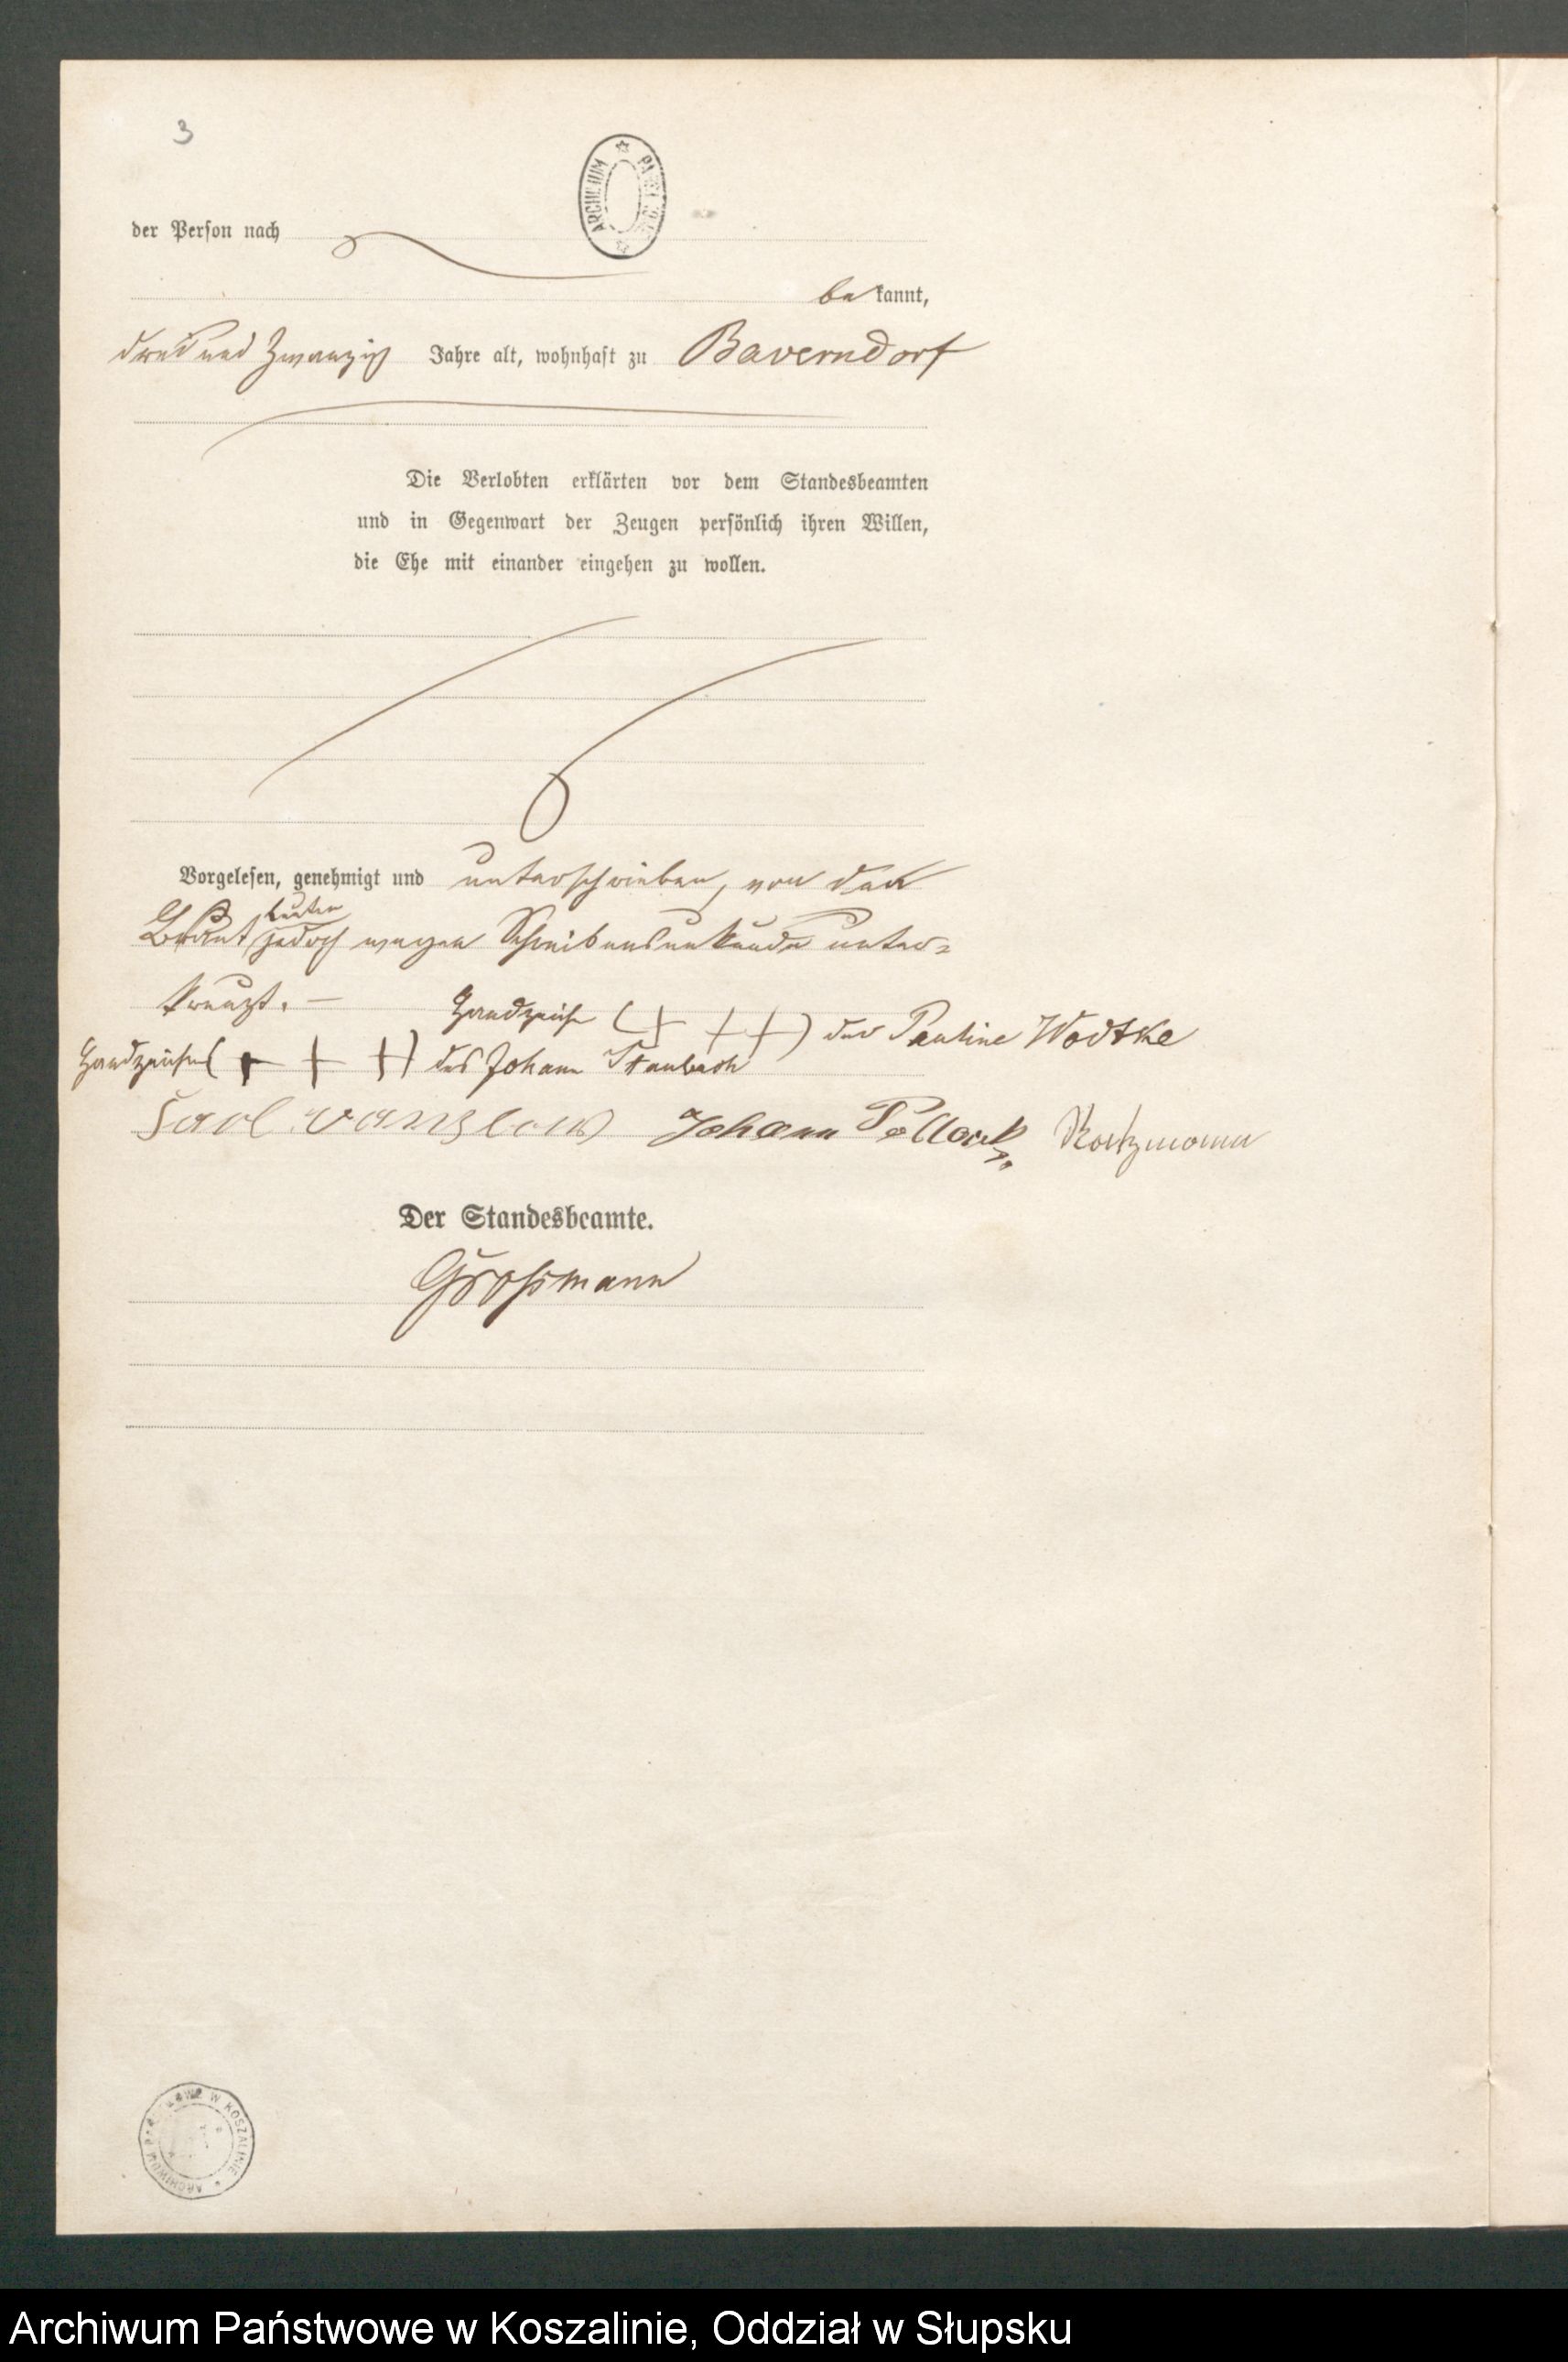 3
ARCHIWUM
der Person nach
bekannt,
dreiundzwanzig Jahre alt, wohnhaft zu Bauerndorf
Die Verlobten erklärten vor dem Standesbeamten
und in Gegenwart der Zeugen persönlich ihren Willen,
die Ehe mit einander eingehen zu wollen.
Vorgelesen, genehmigt und unterschrieben, von den
leuten
Braut jedoch wegen Schreibensunkunde unter=
kreuzt. —
Handzeichen (+ + +) der Pauline Wodtke
Handzeichen (+ + +) des Johann Staubach
Carl Johann Pollack. Kortzmann
Der Standesbeamte.
Großmann
ARCHIWUM PAŃSTWOWE W KOSZALINIE
Archiwum Państwowe w Koszalinie, Oddział w Słupsku